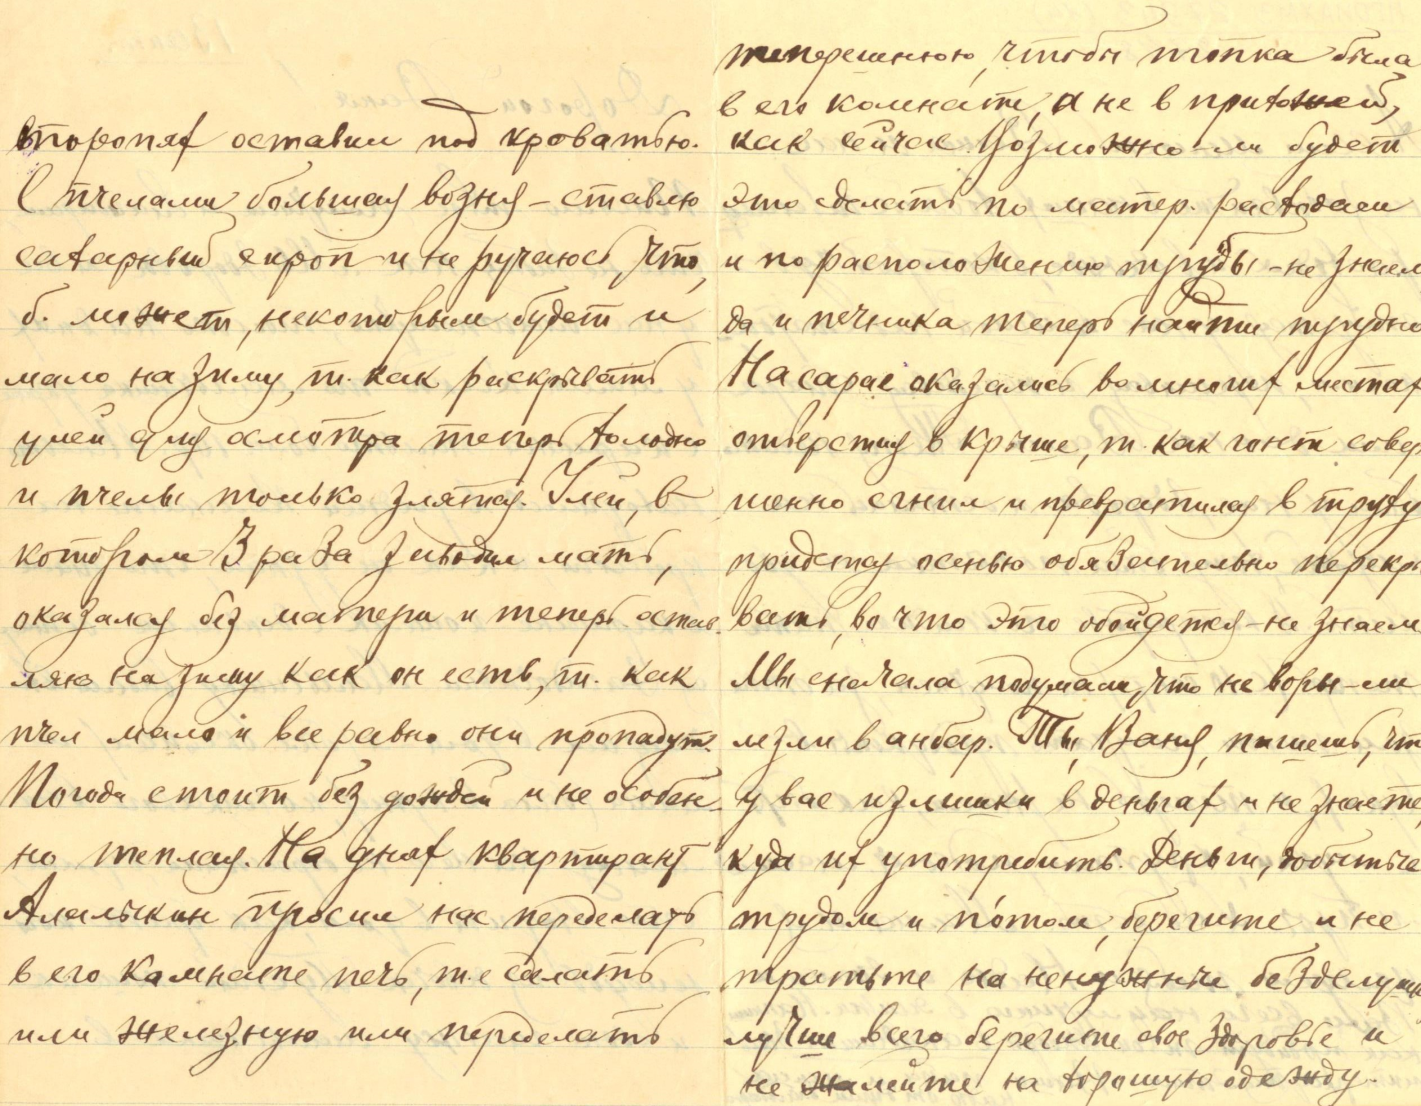 второпях оставил под кроватью.
С пчелами большая возня – ставлю
сахарный сироп и не ручаюсь, что,
б. может, некоторым будет и
мало на зиму, т. как раскрывать
улей для осмотра теперь холодно
и пчелы только злятся. Улей, в
котором 3 раза выводил мать,
оказался без матери и теперь остав-
ляю на зиму как он есть, т. как
пчел мало и все равно они пропадут.
Погода стоит без дождей и не особен-
но теплая. На днях квартирант
Алалыкин просил нас переделать
в его комнате печь, т.е сделать
или железную или переделать
теперешнюю, чтобы топка была
в его комнате, а не в прихожей,
как сейчас. Возможно-ли будет
это сделать по матер. расходам
и по расположению трубы – не знаем
да и печника теперь найти трудно
На сарае оказались во многих местах
отверстия в крыше, т. как гонт совер
шенно сгнил и превратился в труху
придется осенью обязательно перекры
вать, во что это обойдется – не знаем
Мы сначала подумали, что не воры-ли
лезли в анбар. Ты, Ваня, пишешь, чт
у вас излишки в деньгах и не знаете,
куда их употребить. Деньги, добытые
трудом и потом, берегите и не
тратьте на ненужные безделушки
лучше всего берегите свое здоровье и
не жалейте на хорошую одежду.